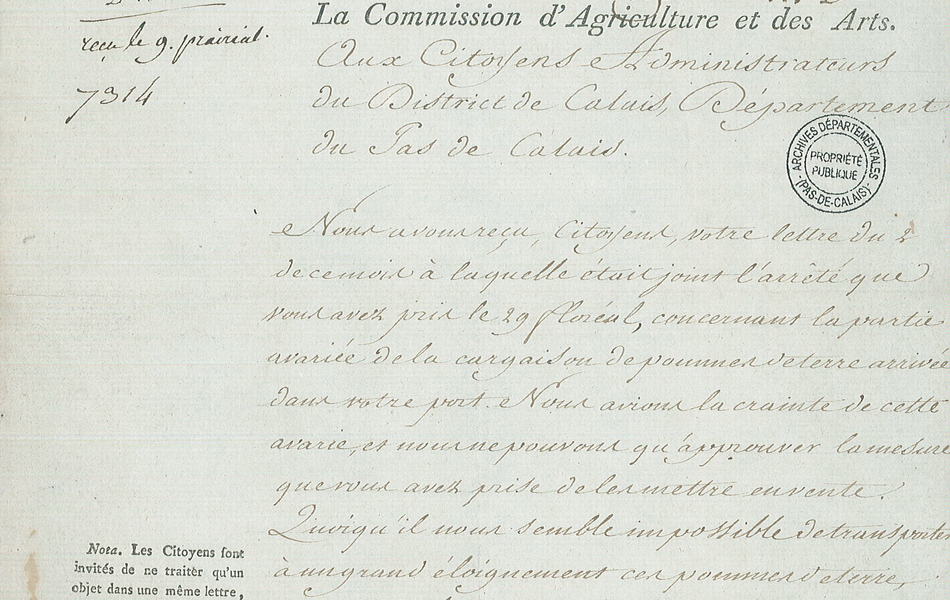 reçu le 9. prairial.
7314
La Commission d'Agriculture et des Arts.
Aux Citoyens Administrateurs
du District de Calais, Département
du Pas de Calais.
ARCHIVES DÉPARTEMENTALES
PROPRIÉTÉ
PUBLIQUE
(PAS-DE-CALAIS)
Nous avons reçu, Citoyens, votre lettre du 2
de ce mois à laquelle était joint l'arrêté que
vous avez pris le 29 floréal, concernant la partie
avariée de la cargaison de pommes de terre arrivée
dans votre port. Nous avions la crainte de cette
avarie, et nous ne pouvons qu'approuver la mesure
que vous avez prise de les mettre en vente.
Quoiqu'il nous semble impossible de transporter
à un grand éloignement ces pommes de terre,
Nota. Les Citoyens sont
invités de ne traiter qu'un
objet dans une même lettre,